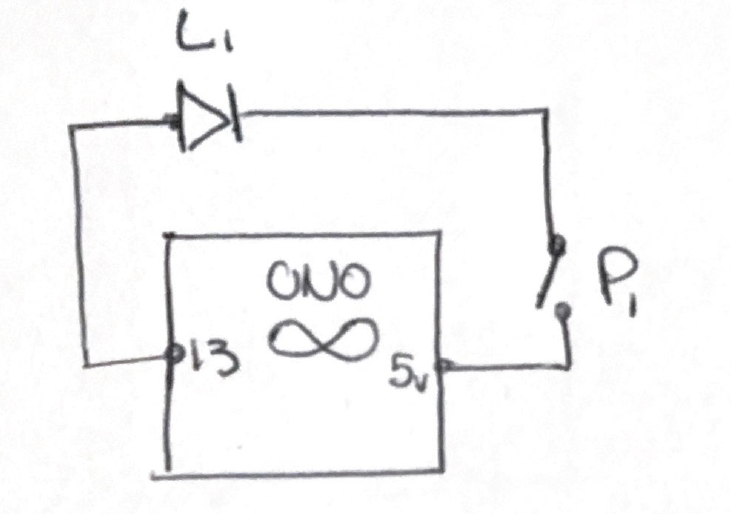 L1
UNO
13
5v
P1